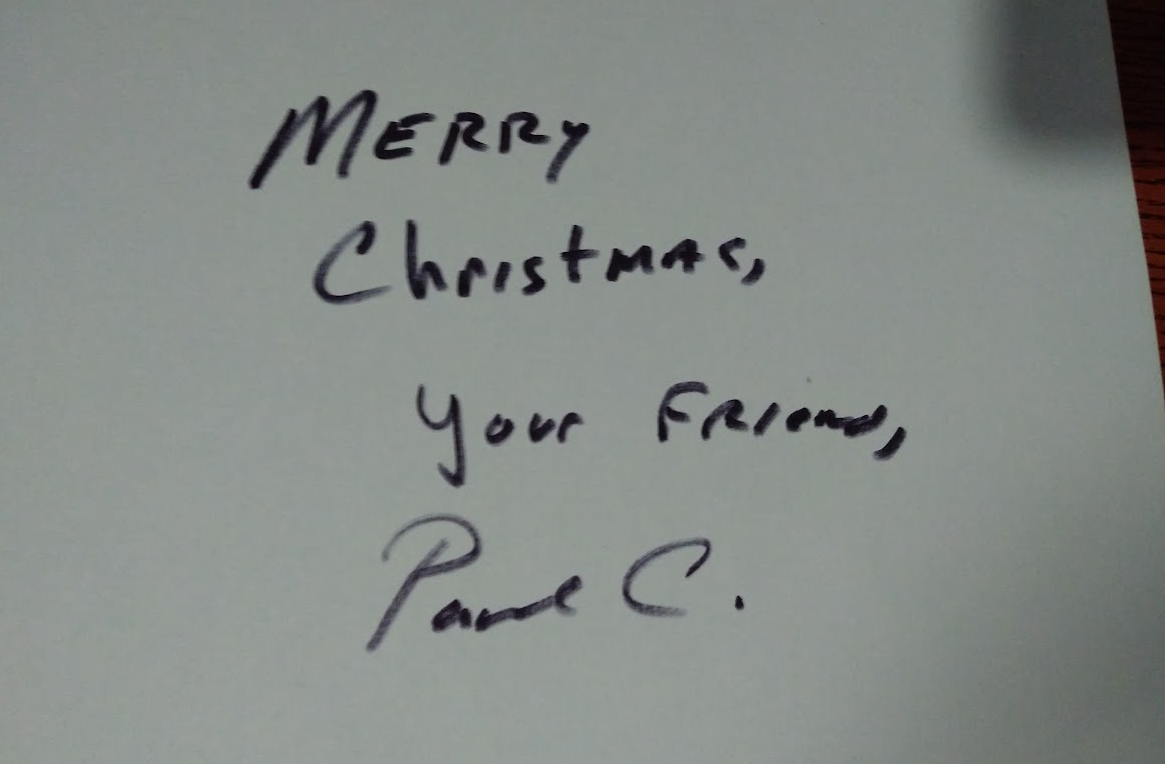 MERRY
Christmas,
Your Friend,
Paul C.